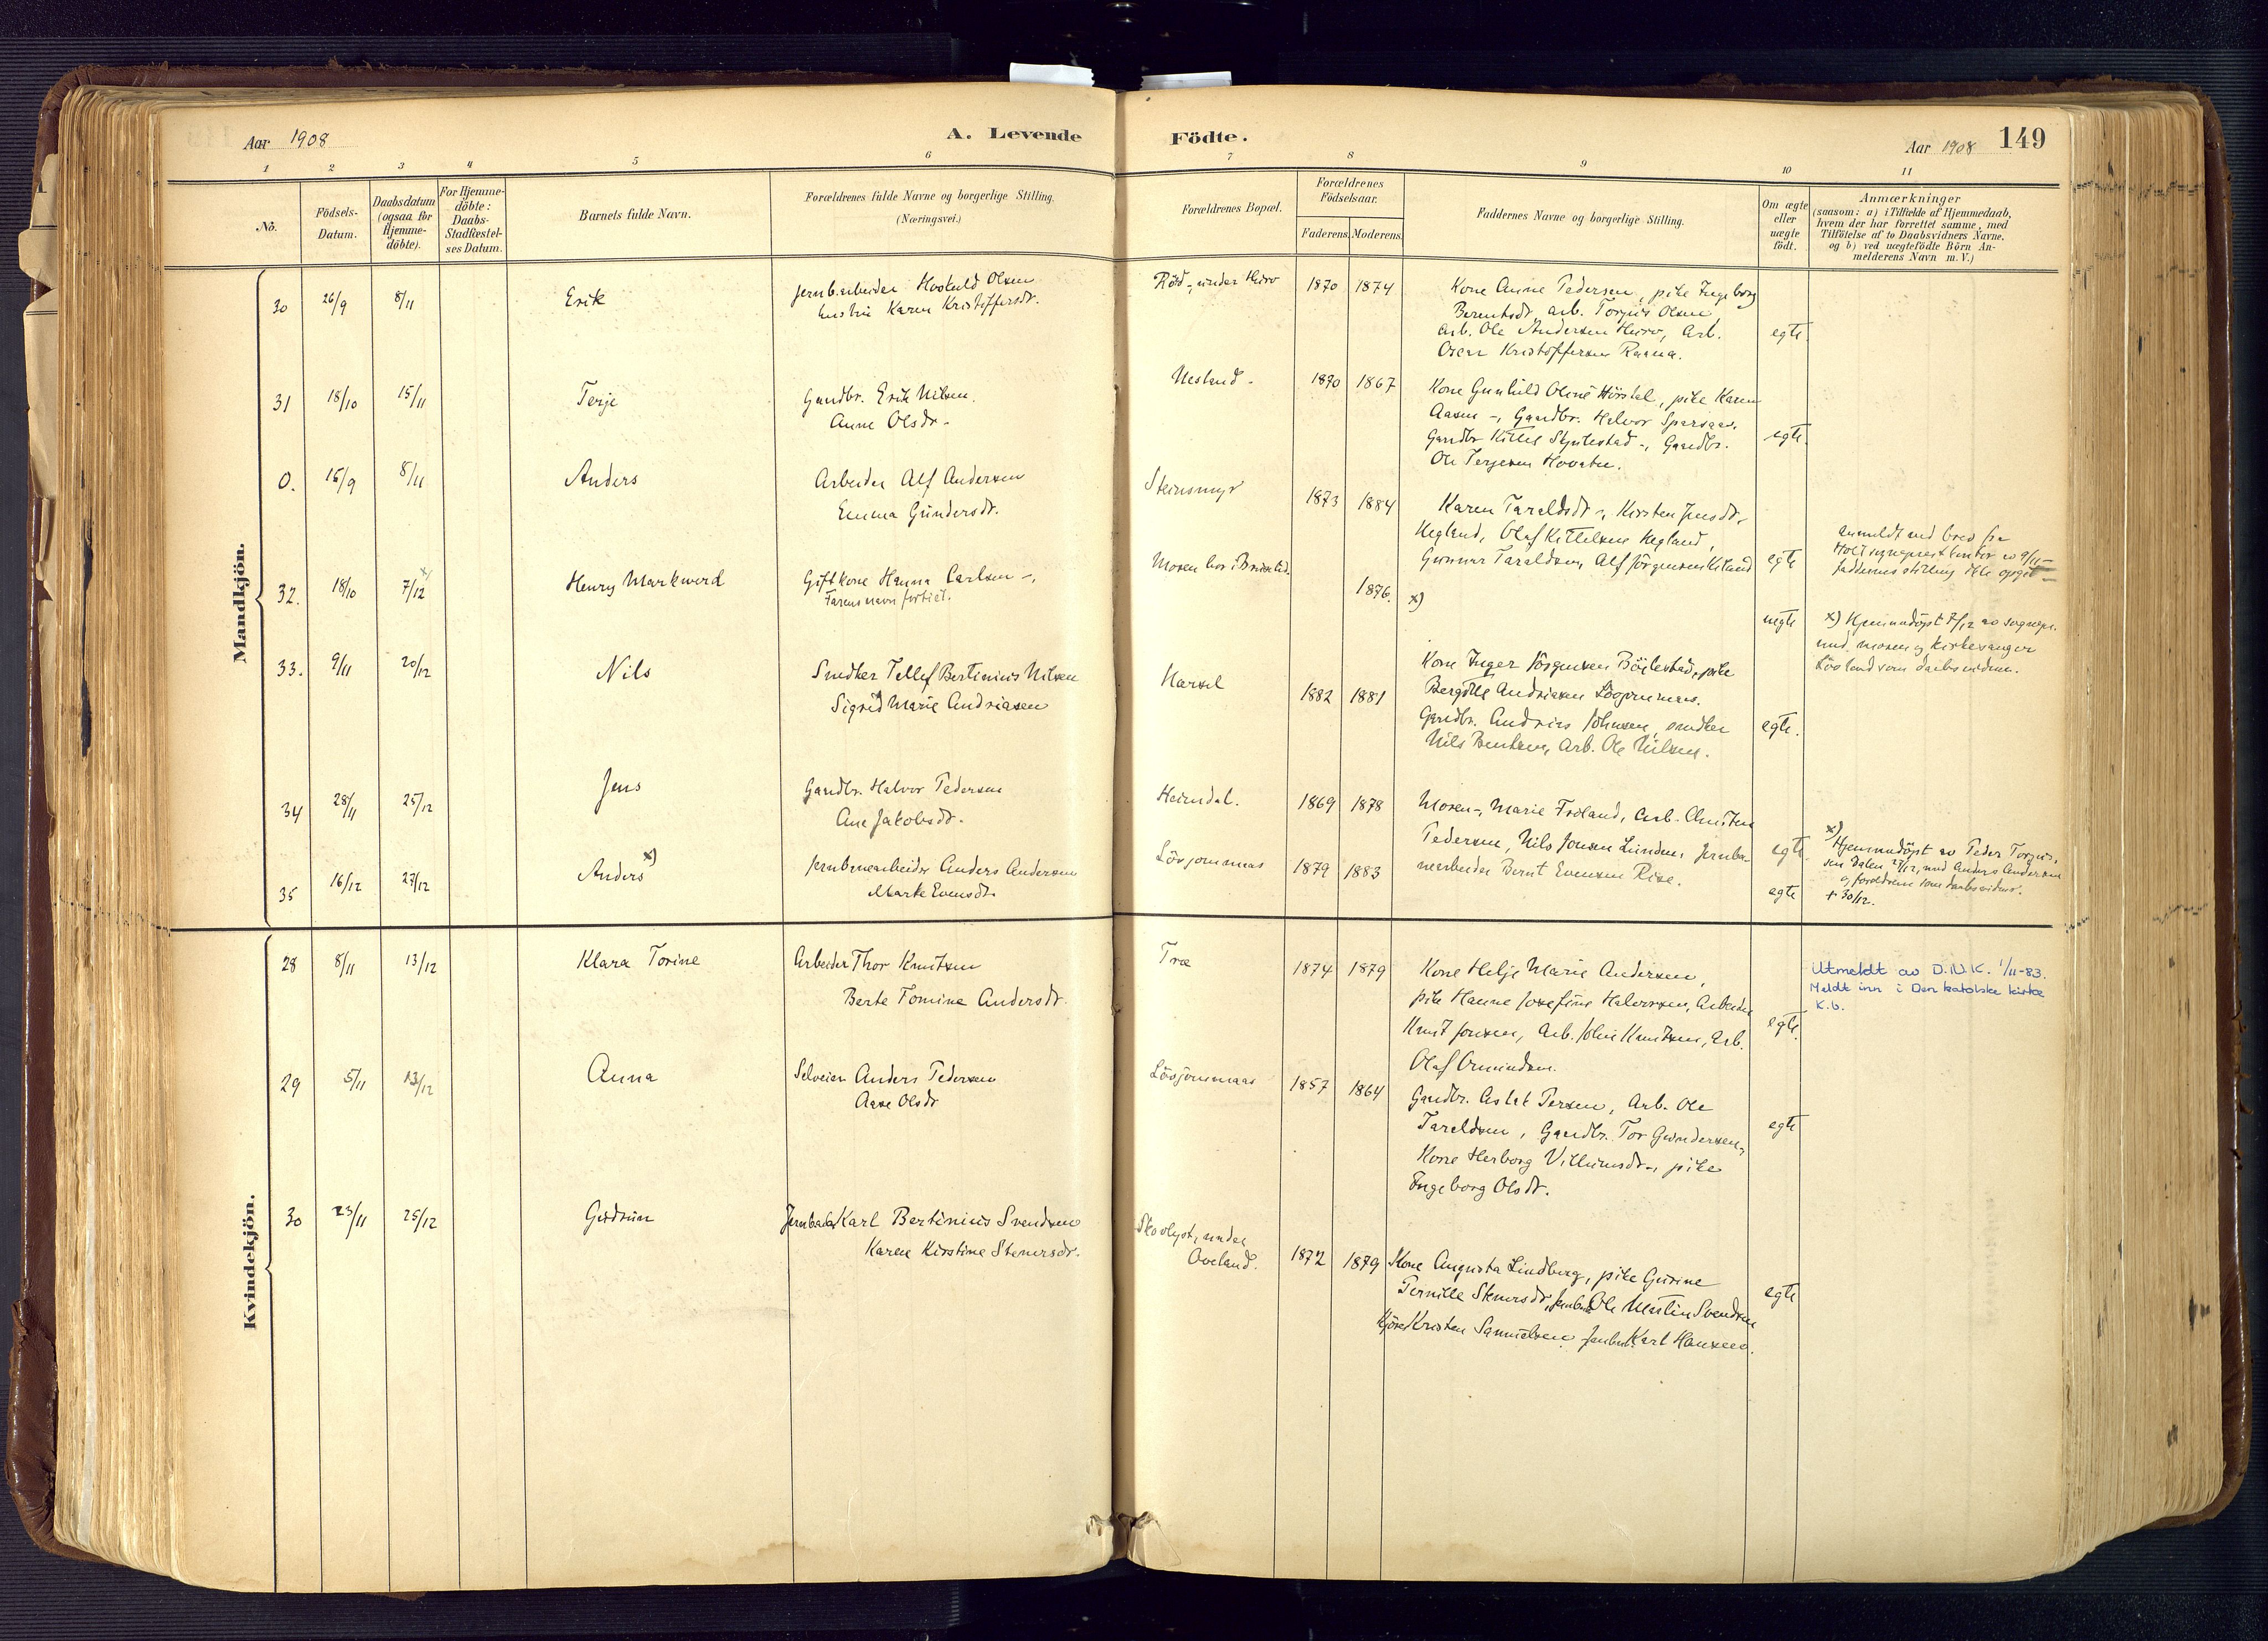 Aar 1908
A. Levende
Födte.
Aar 1908
149
1 2 3 4 5 6 7 8 9 10 11
No.
Födsels-
Datum.
Daabsdatum
(ogsaa for
Hjemme-
döbte).
For Hjemme-
döbte:
Daabs-
Stadfæstel-
ses Datum.
Barnets fulde Navn.
Forældrenes fulde Navne og borgerlige Stilling.
(Næringsvei.)
Forældrenes Bopæl.
Forældrenes
Födselsaar.
Faderens. Moderens.
Faddernes Navne og borgerlige Stilling.
Om ægte
eller
uægte
födt.
Anmærkninger
(saasom: a) i Tilfælde af Hjemmedaab,
hvem der har forrettet samme, med
Tilföielse af to Daabsvidners Navne,
og b) ved uægtefödte Börn An-
melderens Navn m. V.)
Mandkjön.
30 26/9 8/11 Erik
Jernb.arbeider Hoskuld Olsen
hustru Karen Kristoffersdr.
1870 1874
Kone Anne Pedersen, pike Ingeborg
Berentsdr, arb. Torjus Olsen
arb. Ole Andersen Hurv, Arb.
Oscar Kristoffersen Raana.
egte
31 18/10 15/11 Terje
Gaardbr. Erik Nilsen.
Anne Olsdr.
Nesland.
1870 1867
Kone Gunhild Oline Hörstal, pike Karen
Aasen -, Gaardbr. Halvor
Gaardbr Kittel -, Gaardbr.
Ole Terjesen Hovatn.
egte.
0. 15/9 8/11 Anders
Arbeider Alf Andersen
Emma Gundersdr.
Steinsmyr
1873 1884
Karen Taraldsdr -, Kirsten Jensdr,
Hegland, Olaf Kittelsen Hegland,
Gunnar Taraldsen, Alf Jörgensen
egte
anmeldt ved brev fra
Holt sogneprestkontor av 9/11
faddernes stilling ikke opgit
32. 18/10 7/12 x) Henry Markword
Gift kone Hanna Carlsen -,
Farens navn fortiet.
Moren bor i
1876.
x)
uegte
x) Hjemmedöpt 7/12 av sognepr.
med moren og kirkesanger
Lövland som daabsvidner.
33. 9/11 20/12 Nils
Snedker Tellef Bertinius Nilsen
Sigrid Marie Andriasen
1882 1881
Kone Inger Jörgensen Böilestad, pike
Bergitte Andriasen Lövjommaas.
Gaardbr. Andrias Johnsen, snedker
Nils Berntsen, Arb. Ole Nilsen.
egte.
34 28/11 25/12 Jens
Gaardbr. Halvor Pedersen
Ane Jakobsdr.
Heimdal.
1869 1878
Moren -, Marie Froland, Arb. Christen
Pedersen, Nils Jonsen Lunden, Jernba-
nearbeider Bernt Evensen Rise.
egte
35 16/12 27/12 Anders x)
Jernbanearbeider Anders Andersen
Marte Evensdr.
Lövjommaas
1879 1883
egte
x) Hjemmedöpt av Peder Torjus-
sen Dalen 27/12, med Anders Andersen
og foreldrene som daabsvidner.
+ 30/12.
Kvindekjön.
28 8/11 13/12 Klara Torine
Arbeider Thor Knutsen
Berte Tomine Andersdr.
Træ
1874 1879
Kone Helje Marie Andersen,
pike Hanne Josefine Halvorsen, Arbeider
Knut Jonsen, Arb. John Knutsen, Arb.
Olaf Omundsen.
egte.
Utmeldt av D.N.K. 1/11-83.
Meldt inn i Den katolske kirke
K.b.
29 5/11 13/12 Anna
Selveier Anders Pedersen
Aase Olsdr
Lövjommaas
1857 1864
Gaardbr. Aslak Persen, Arb. Ole
Taraldsen, Gaardbr. Tor Gundersen,
Kone Herborg Villumsdr -, pike
Ingeborg Olsdr.
egte
30 23/11 25/12 Gudrun
Jernbarb. Karl Bertinius Svendsen
Karen Kirstine Stenersdr.
Skovlyst, under
Aveland.
1872 1879
Kone Augusta Lindberg, pike Gurine
Pernille Stenersdr, Jernb. Ole Martin Svendsen
Kristen Samuelsen, Jernb. Karl Hansen.
egte